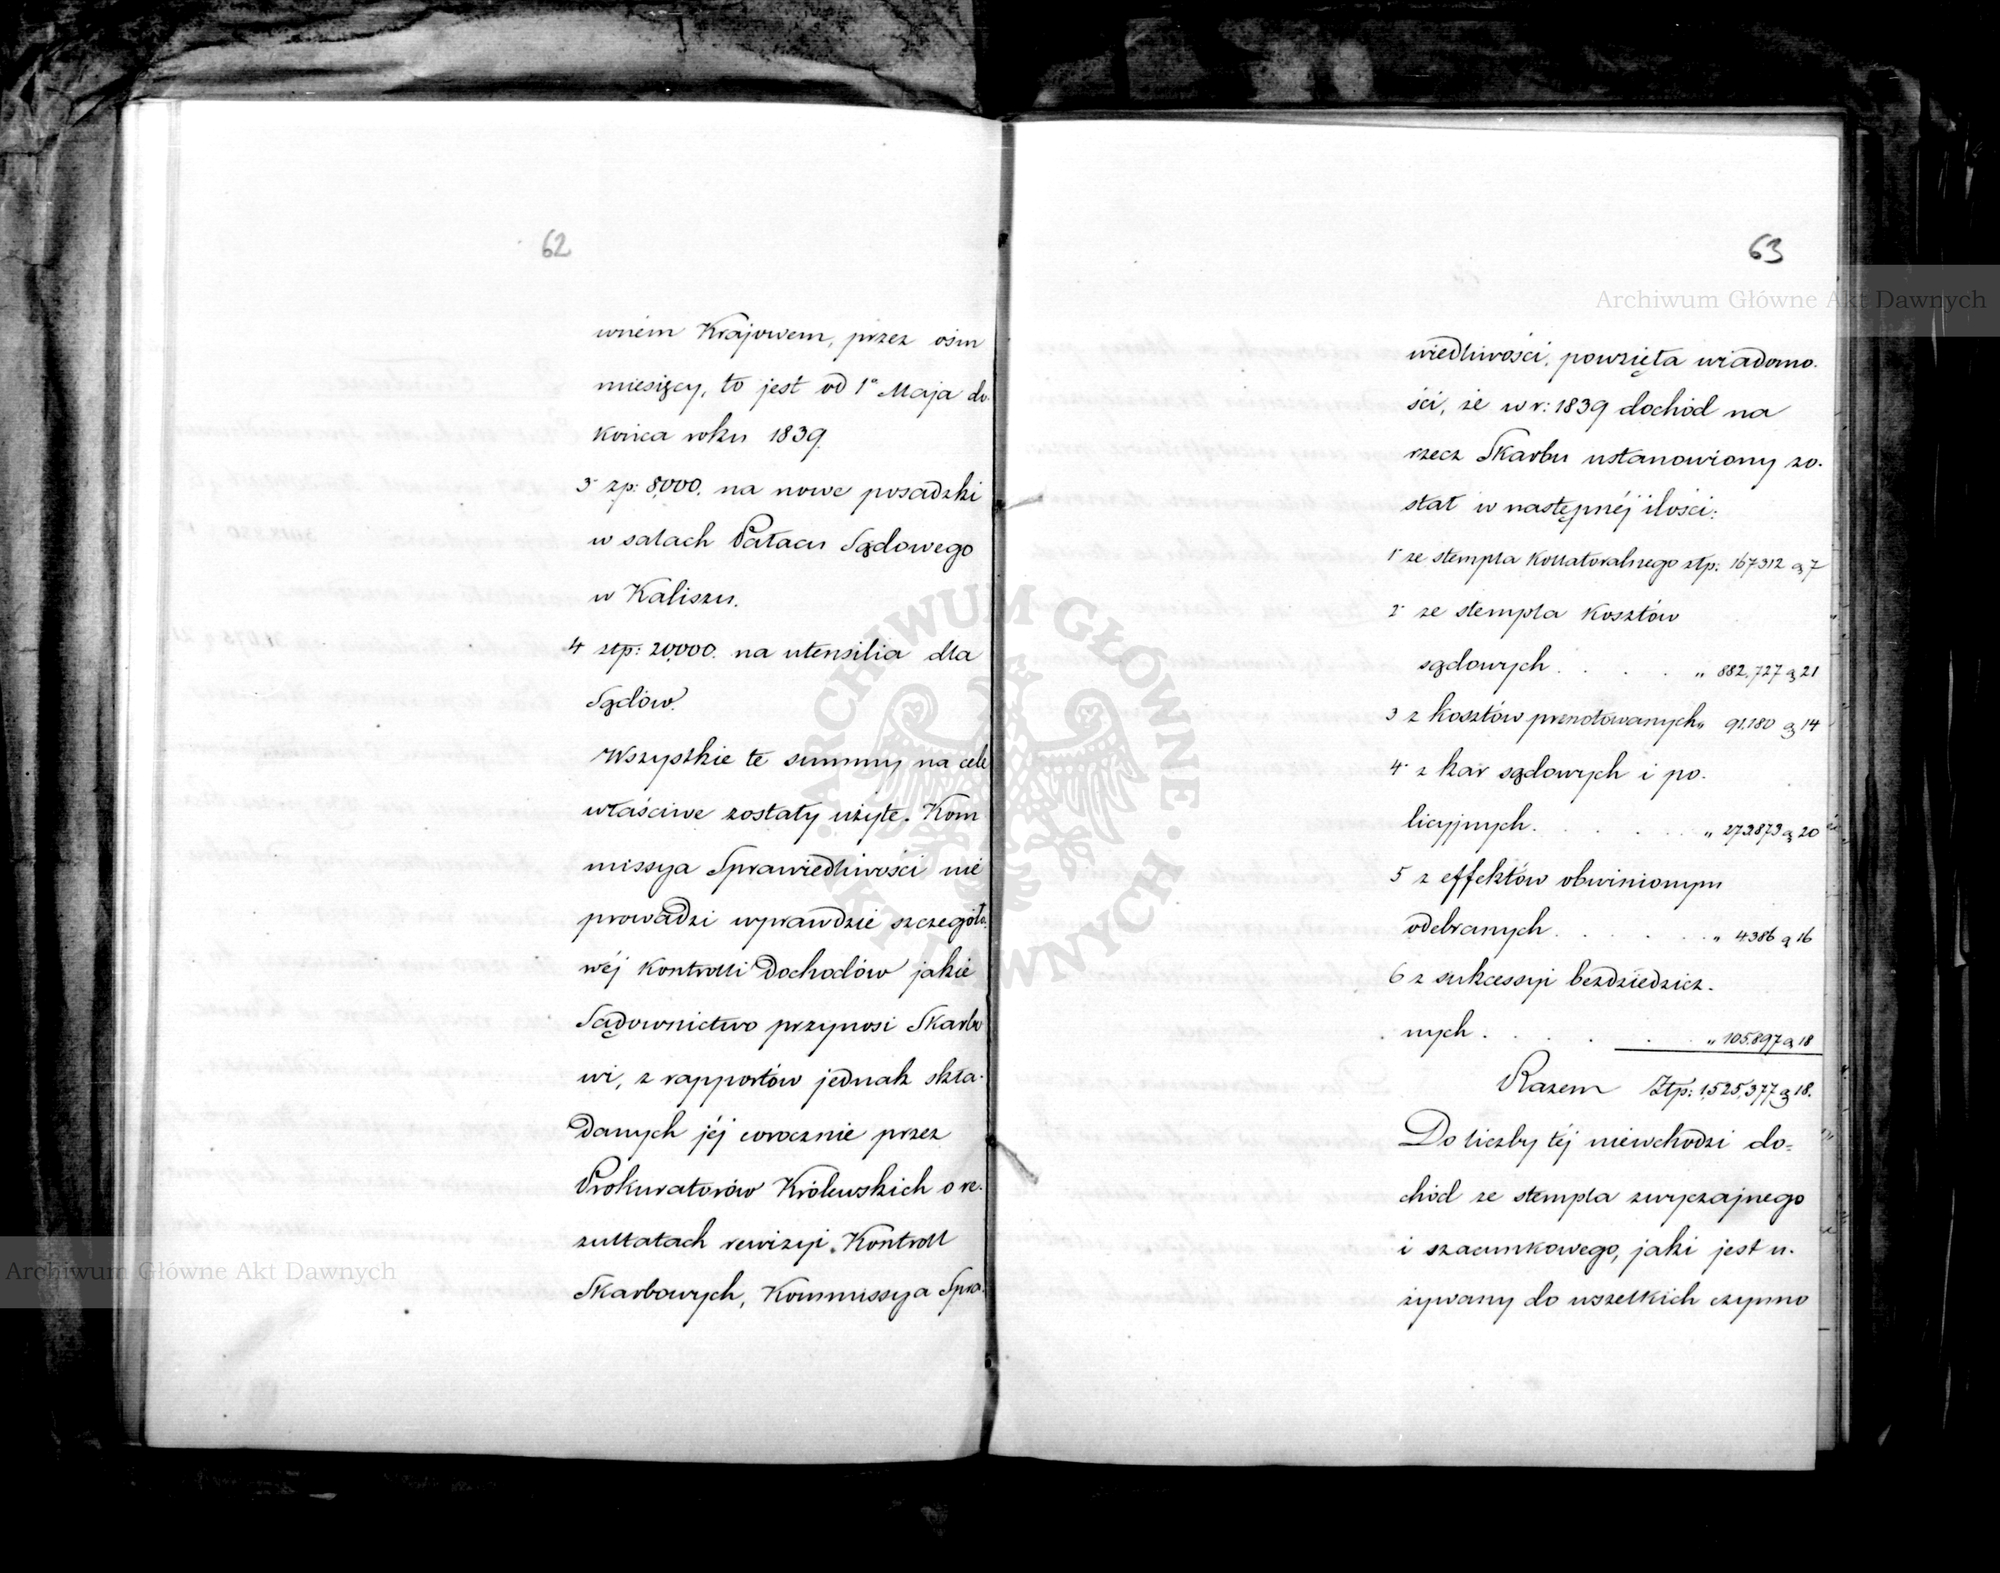 62
wném Krajowem, przez ośm
miesięcy, to jest od 1º Maja do
końca roku 1839.
3 zp: 8,000. na nowe posadzki
w salach Pałacu Sądowego
w Kaliszu.
4 złp: 20,000. na utensilia dla
Sądów.
Wszystkie te summy na cele
właściwe zostały użyte. Kom
missya Sprawiedliwości nie
prowadzi wprawdzie szczegóło.
wéj Kontrolli Dochodów jakie
Sądownictwo przynosi Skarbo
wi, z rapportów jednak skła-
danych jéj corocznie przez
Prokuratorów Królewskich o re-
zultatach rewizyi Kontroll
Skarbowych, Kommissya Spra-
63
wiedliwości, powzięła wiadomo-
ści, że w r: 1839 dochód na
rzecz Skarbu ustanowiony zo-
stał w następnéj ilości:
1 ze stempla Kollatoralnego złp: 167312 g 7
2 ze stempla Kosztów
sądowych . . . . " 882,727 g 21
3 z kosztów prenotowanych " 91,180 g 14
4 z kar sądowych i po-
licyjnych . . . . " 273873 g 20
5 z effektów obwinionym
odebranych . . . . " 4386 g 16
6 z sukcessyi bezdziedzicz-
nych . . . . " 105.897 g 18
Razem Złp: 1,525,377 g 18.
Do liczby téj niewchodzi do=
chód ze stempla zwyczajnego
i szacunkowego, jaki jest u-
żywany do wszelkich czynno
Archiwum Główne Akt Dawnych
Archiwum Główne Akt Dawnych
ARCHIWUM GŁÓWNE AKT DAWNYCH